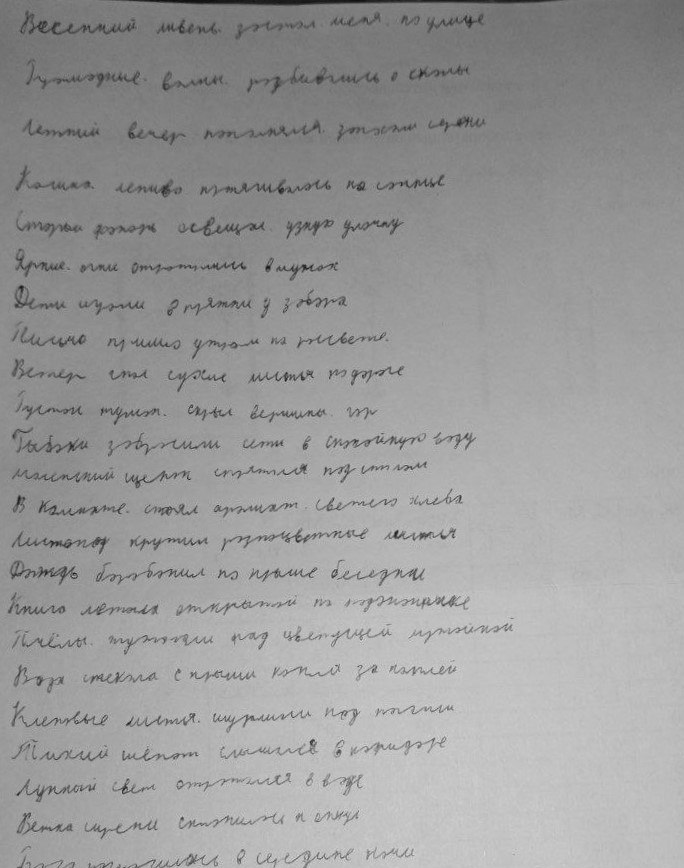 Весенний ливень застал меня на улице
Громадные волны разбивались о скалы
Летний вечер наполнялся запахом сирени
Кошка лениво потягивалась на солнце
Старый фонарь освещал узкую улочку
Яркие огни отражались в лужах
Дети играли в прятки у забора
Письмо пришло утром на рассвете.
Ветер гнал сухие листья по дороге
Густой туман скрыл вершины гор
Рыбаки забросили сети в спокойную воду
Маленький щенок спрятался под столом
В комнате стоял аромат свежего хлеба
Листопад крутил разноцветные листья
Дождь барабанил по крыше беседки
Книга лежала открытой на подоконнике
Пчёлы жужжали над цветущей
Вода стекала с крыши капля за каплей
Кленовые листья шуршали под ногами
Тихий шёпот слышался в коридоре
Лунный свет отражался в воде
Ветка сирени склонилась к окну
в середине ночи